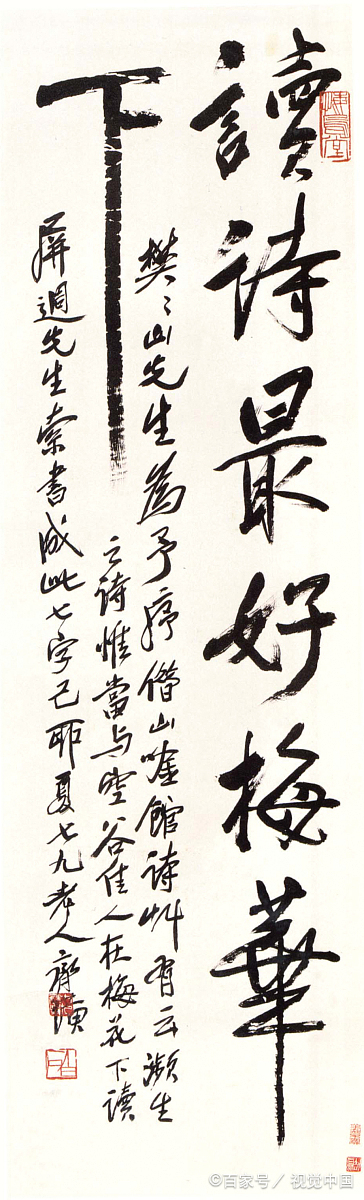 讀詩最好梅華
下
樊〻山先生為予序借山唫館詩艸有云瀕生
之詩惟當与空谷佳人在梅花下讀
屏週先生索書成此七字己卯夏七九老人齊璜
悔烏堂
©百家号/视觉中国